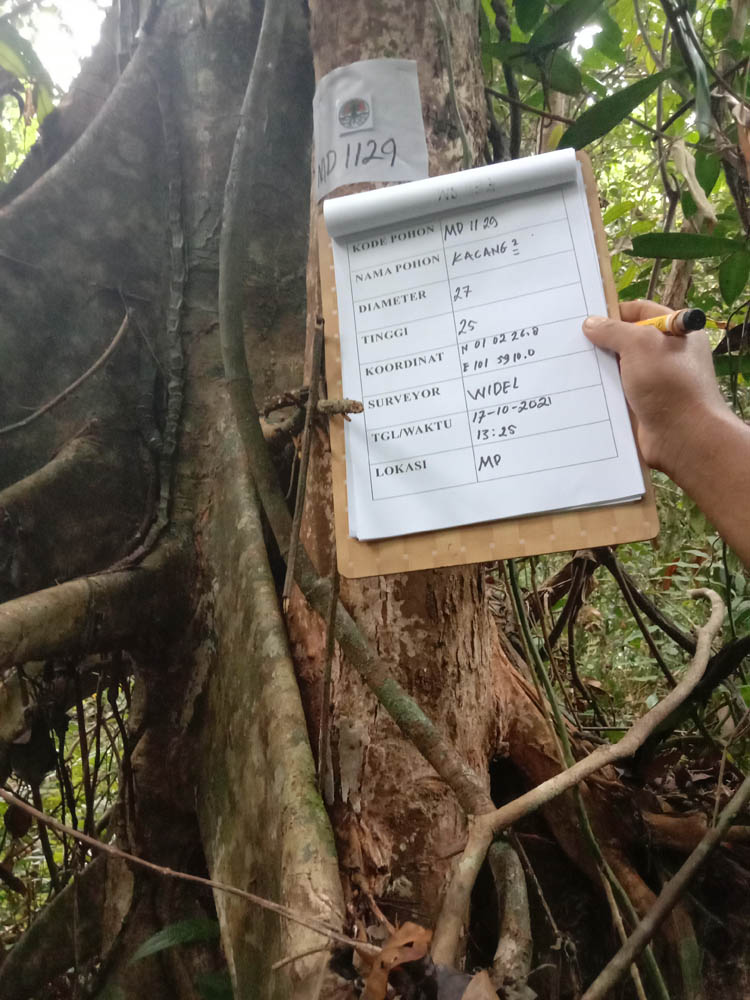 MD 1129
KODE POHON MD 1129
NAMA POHON KACANG 2
DIAMETER 27
TINGGI 25
KOORDINAT N 01 02 26.8
E 101 59 10.0
SURVEYOR WIDEL
TGL/WAKTU 17-10-2021
13:25
LOKASI MD